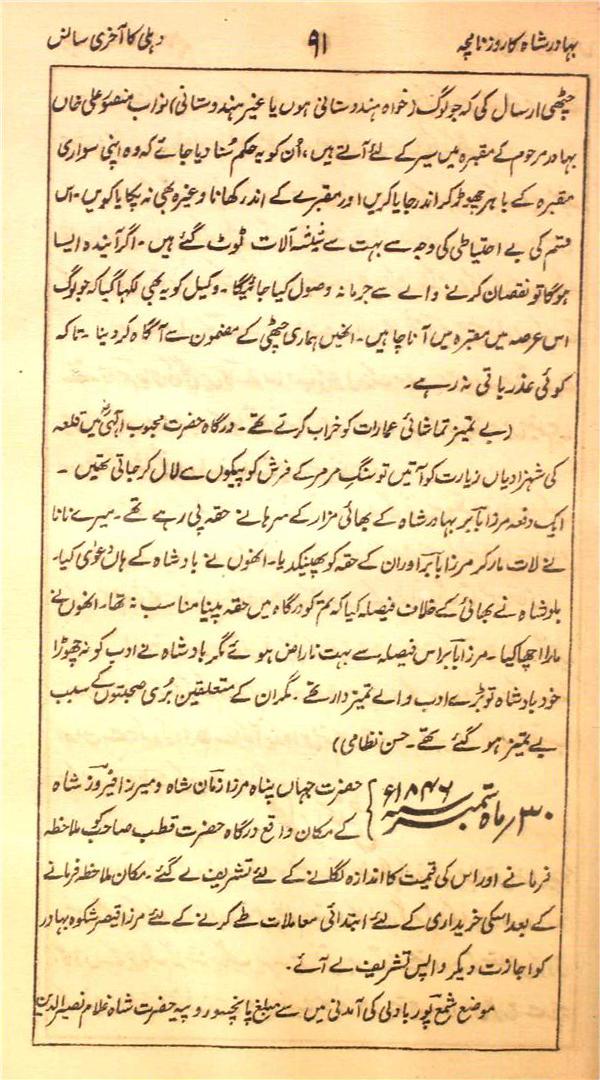 بہادر شاہ کا روزنامچہ
۹۱
دہلی کا آخری سانس
چٹھی ارسال کی کہ جو لوگ (خواہ ہندوستانی ہوں یا غیر ہندوستانی) نواب منصور علی خاں
بہادر مرحوم کے مقبرہ میں سیر کے لئے آتے ہیں، اُن کو یہ حکم سُنا دیا جائے کہ وہ اپنی سواری
مقبرہ کے باہر چھوڑ کر اندر جایا کریں اور مقبرے کے اندر کھانا وغیرہ بھی نہ پکایا کریں۔ اس
قسم کی بے احتیاطی کی وجہ سے بہت سے شیشہ آلات ٹوٹ گئے ہیں۔ اگر آیندہ ایسا
ہوگا تو نقصان کرنے والے سے جرمانہ وصول کیا جائیگا۔ وکیل کو یہ بھی لکھا گیا کہ جو لوگ
اس عرصہ میں مقبرہ میں آنا چاہیں۔ انھیں ہماری چٹھی کے مضمون سے آگاہ کر دینا۔ تاکہ
کوئی عذر باقی نہ رہے۔
(بے تمیز تماشائی عمارات کو خراب کرتے تھے۔ درگاہ حضرت محبوب الٰہیؒ میں قلعہ
کی شہزادیاں زیارت کو آتیں تو سنگ مرمر کے فرش کو پیکوں سے لال کر جاتی تھیں۔
ایک دفعہ مرزا بابر بہادر شاہ کے بھائی مزار کے سرہانے حقہ پی رہے تھے۔ میرے نانا
نے لات مار کر مرزا بابر اور ان کے حقہ کو پھینکدیا۔ انھوں نے بادشاہ کے ہاں دعوٰی کیا۔
بادشاہ نے بھائی کے خلاف فیصلہ کیا کہ تم کو درگاہ میں حقہ پینا مناسب نہ تھا۔ انھوں نے
مارا اچھا کیا۔ مرزا بابر اس فیصلہ سے بہت ناراض ہوئے مگر بادشاہ نے ادب کو نہ چھوڑا
خود بادشاہ تو بڑے ادب والے تمیز دار تھے۔ مگر ان کے متعلقین بُری صحبتوں کے سبب
بے تمیز ہو گئے تھے۔ حسن نظامی)
۳۰؍ماہ ستمبر سنہ ۱۸۴۶ء } حضرت جہاں پناہ مرزا زمان شاہ و میرزا فیروز شاہ
کے مکان واقع درگاہ حضرت قطب صاحب کو ملاحظہ
فرمانے اور اس کی قیمت کا اندازہ لگانے کے لئے تشریف لے گئے۔ مکان ملاحظہ فرمانے
کے بعد اسکی خریداری کے لئے ابتدائی معاملات طے کرنے کے لئے مرزا قیصر شکوہ بہادر
کو اجازت دیکر واپس تشریف لے آئے۔
موضع شمع پور بادلی کی آمدنی میں سے مبلغ پانچسو روپیہ حضرت شاہ غلام نصیر الدین